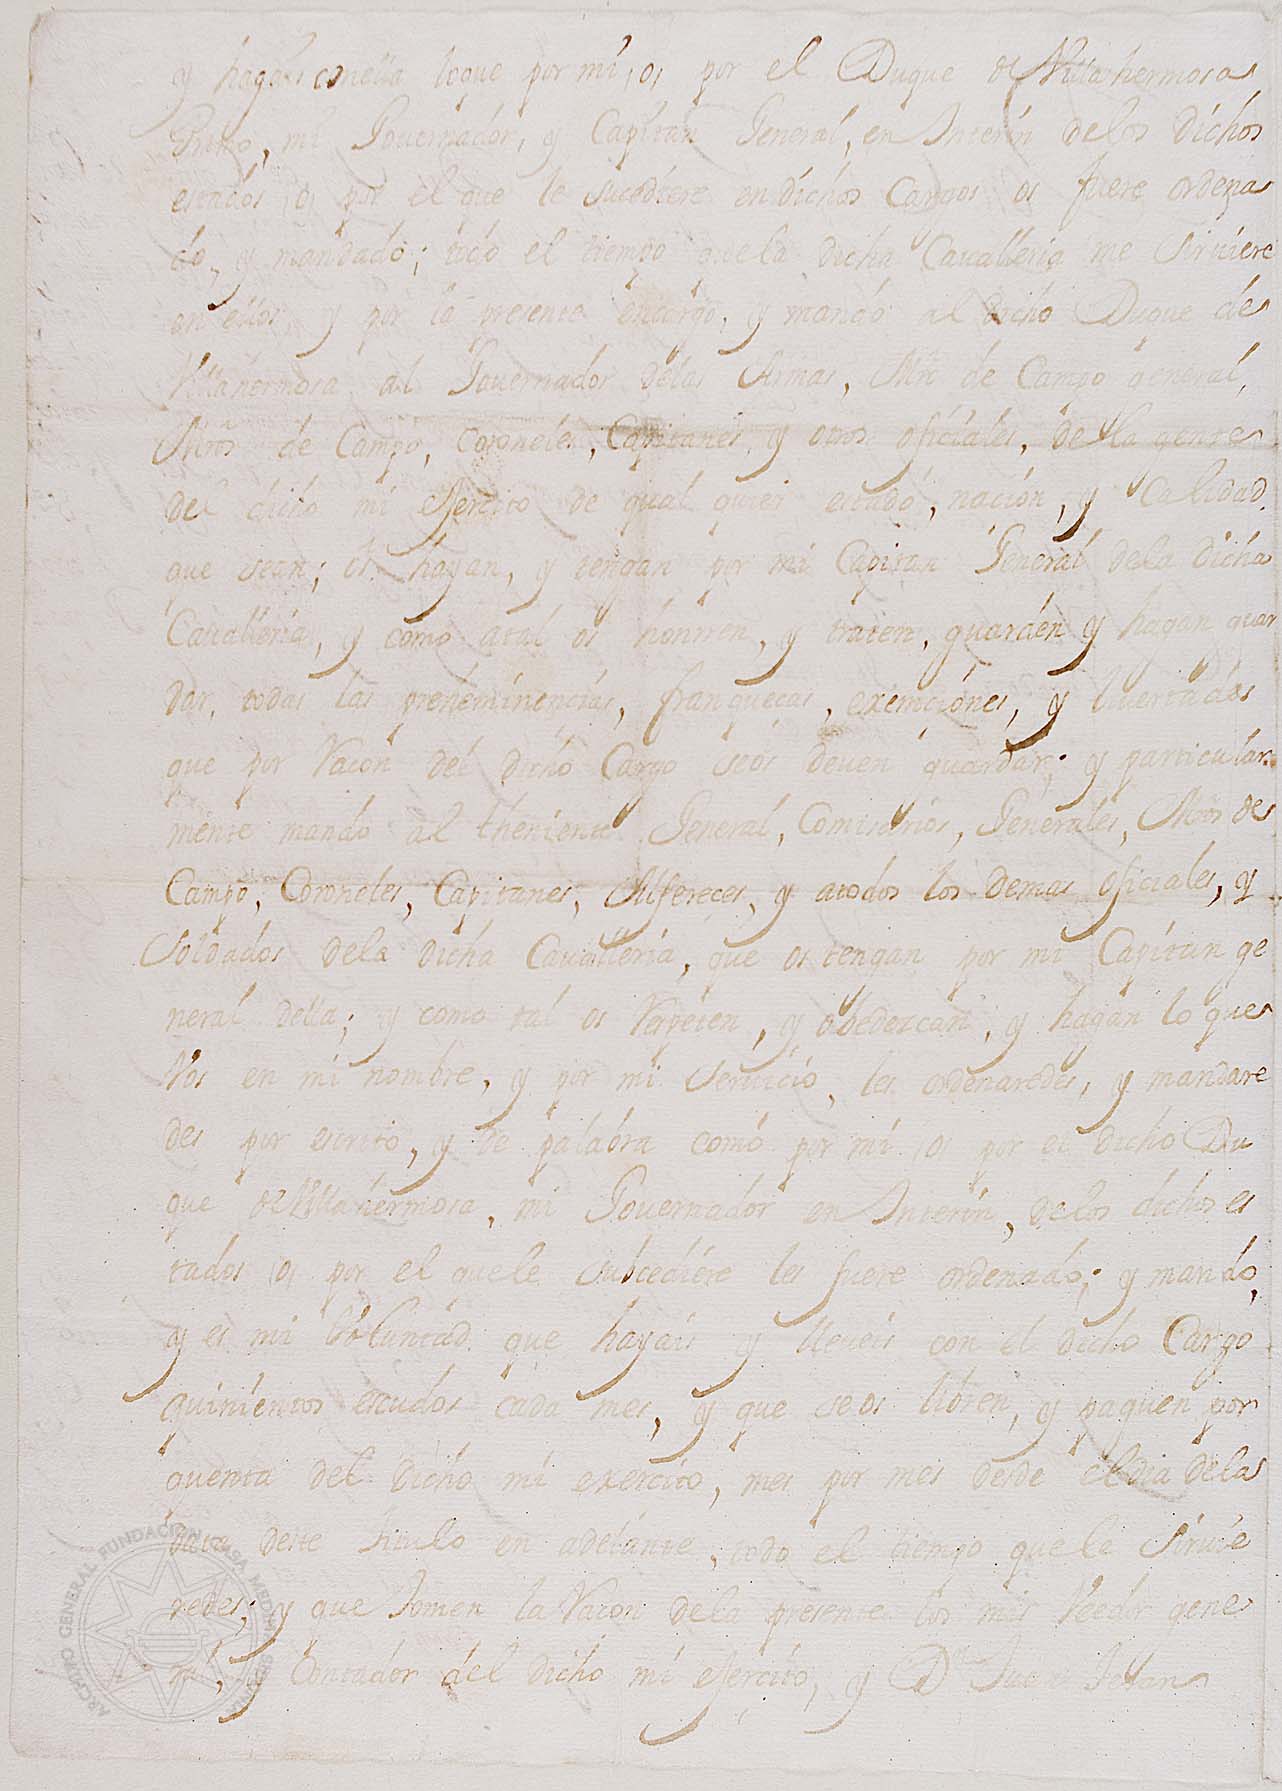 y hagais conella loque por mi, o, por el Duque de Villahermosa
Primo, mi Gouernador, y Capitan General, en Interin delos dichos
estados, o, por el que le sucediere endichos Cargos os fuere ordena
do, y mandado; todo el tiempo quela dicha Cauallería me siruiere
en ellos, y por la presente encargo, y mando al dicho Duque de
Villahermosa al Gouernador delas Armas, Mro de Campo general,
Mros de Campo, Coroneles, Capitanes, y otros oficiales, de la gente
del dicho mi ejercito de qual quier estado, nación, y Calidad,
que sean; os hayan, y tengan por mi Capitan General dela dicha
Cauallería, y como atal os honrren, y traten, guarden y hagan guar
dar, todas las preheminencias, franquecas, exempciones, y liuertades
que por Racon del dicho Cargo seos deuen guardar; y particular
mente mando al theniente General, Comisarios, Generales, Mros de
Campo, Coroneles, Capitanes, Alfereces, y atodos los demas oficiales, y
Soldados dela dicha Cauallería, que os tengan por mi Capitan ge
neral della; y como tal os Respeten, y obedezcan, y hagan lo que
Vos en mi nombre, y por mi seruicio, les ordenaredes, y mandare
des por escrito, y de palabra como por mi, o, por el dicho Du
que de Villahermosa, mi Gouernador en Interin, delos dichos es
tados, o, por el quele subcediere les fuere ordenado; y mando,
y es mi Voluntad que hayais y lleueis con el dicho Cargo
quinientos escudos cada mes, y que seos libren, y paguen por
quenta del dicho mi exercito, mes por mes desde el dia dela
data deste titulo en adelante, todo el tiempo quele siruie
redes; y que tomen la Racon dela presente los mis Veedor gene
ral, y Contador del dicho mi ejercito, y Dn Juan
ARCHIVO GENERAL FUNDACION CASA MEDINA SIDONIA